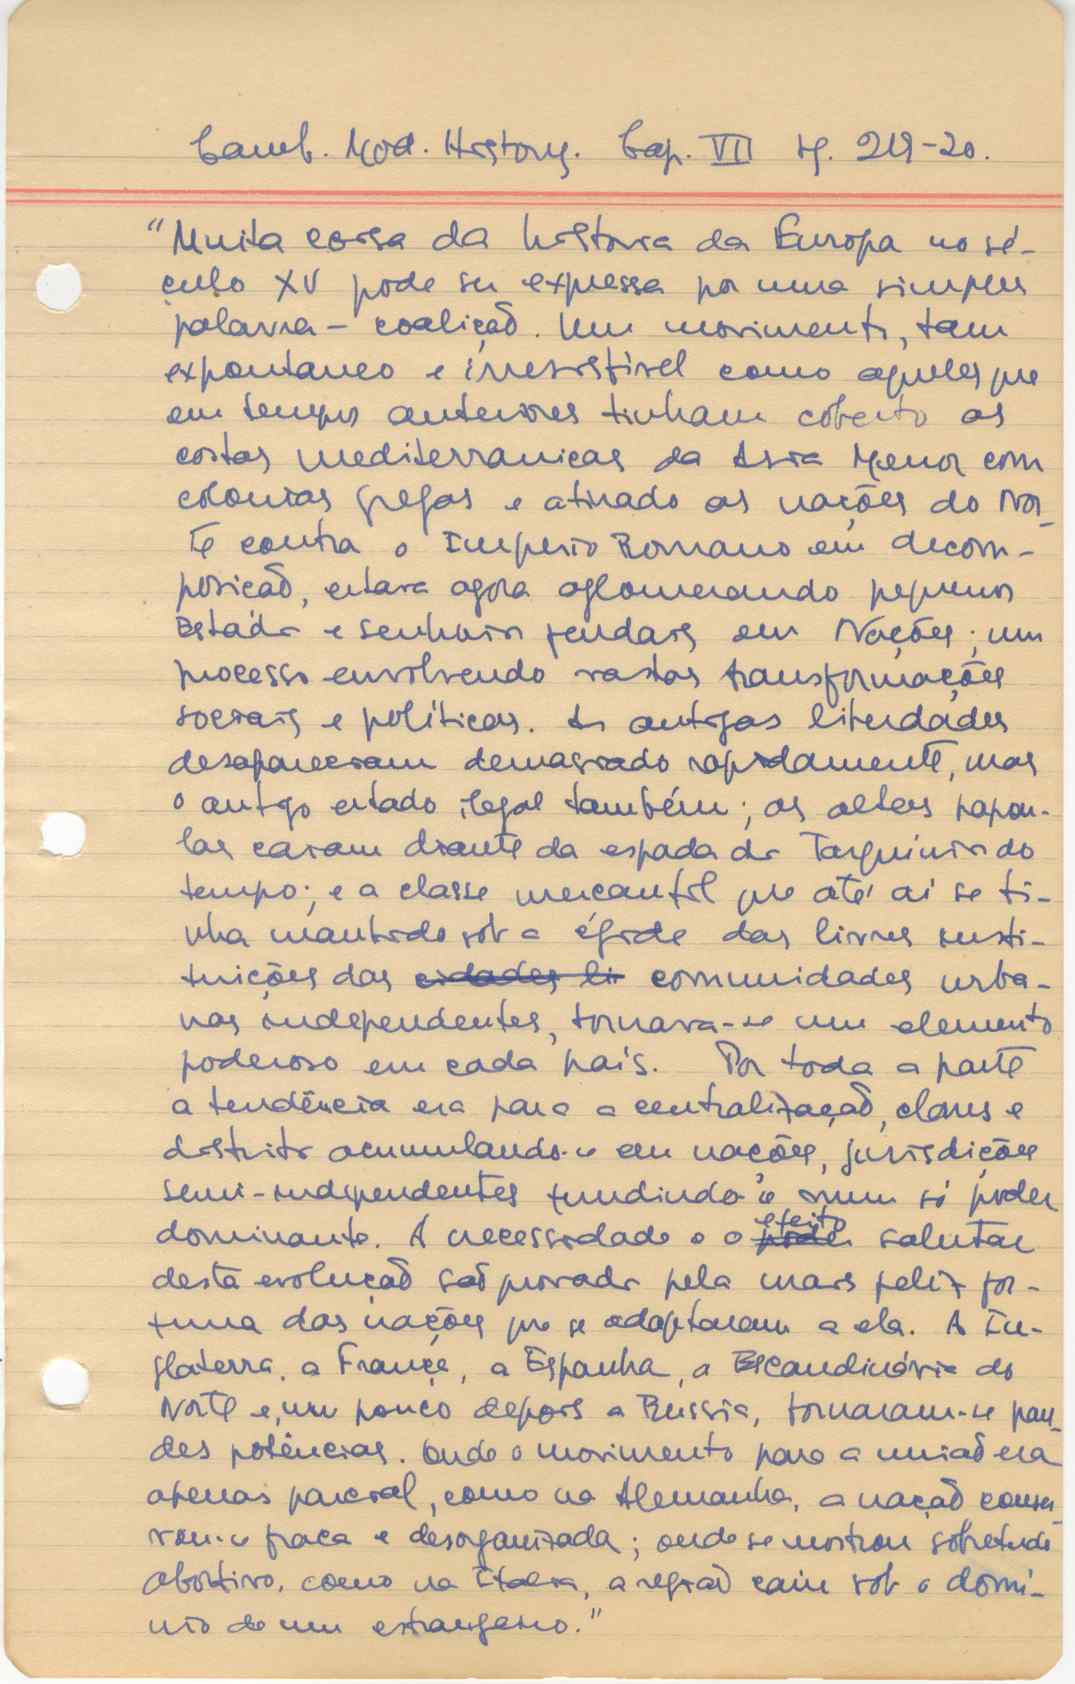 Camb. Mod. History. Cap. VII pg. 219-20.
"Muita coisa da historia da Europa no sé-
culo XV pode ser expressa por uma simples
palavra – coalição. Um movimento, tam
expontaneo e irresistivel como aqueles que
em tempos anteriores tinham coberto as
costas mediterranicas da Asia Menor com
colonias gregas e atirado as nações do Nor-
te contra o Imperio Romano em decom-
posição, estava agora aglomerando pequenos
Estados e senhorios feudais em Nações; um
processo envolvendo vastas transformações
sociais e políticas. As antigas liberdades
desapareceram demasiado rapidamente, mas
o antigo estado ilegal também; os
cairam diante da espada dos Tarquinios do
tempo; e a classe mercantil que até aí se ti-
nha mantido sob a égide das livres insti-
tuições das cidades li comunidades urba-
nas independentes, tornava-se um elemento
poderoso em cada país. Por toda a parte
a tendência era para a centralização, clans e
distritos acumulando-se em nações, jurisdições
semi-independentes fundindo-se num só poder
dominante. A necessidade e o poder efeito salutar
desta evolução são provados pela mais feliz for-
tuna das nações que se adaptaram a ela. A In-
glaterra, a França, a Espanha, a Escandinávia do
Norte e, um pouco depois a Russia, tornaram-se gran-
des potências. Onde o movimento para a união era
apenas parcial, como na Alemanha, a nação conser-
vou-se fraca e desorganizada; onde se mostrou sobretudo
abortivo, como na Italia, a região caiu sob o domi-
nio de um estrangeiro."